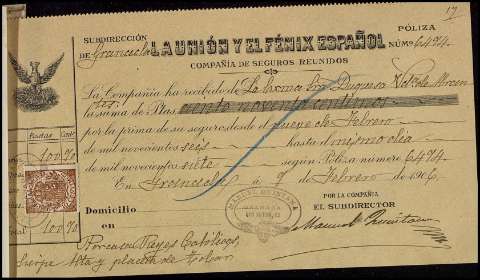 17
SUBDIRECCIÓN
DE Granada
LA UNIÓN Y EL FÉNIX ESPAÑOL
COMPAÑÍA DE SEGUROS REUNIDOS
PÓLIZA
NÚMº 6474
La Compañía ha recibido de La Excma Sra Duquesa
la suma de Ptas ciento noventa céntimos
por la prima de su seguro desde el nueve de Febrero
de mil novecientos seis hasta el mismo día
de mil novecientos siete según Póliza número 6474
En Granada á 9 de Febrero de 1906
Pesetas Cents
100 90
100 90
POR LA COMPAÑÍA
EL SUBDIRECTOR
Manuel Quintana
MANUEL QUINTANA
GRANADA
Domicilio
en
Reyes Católicos,
Sierpe Alta y placeta de